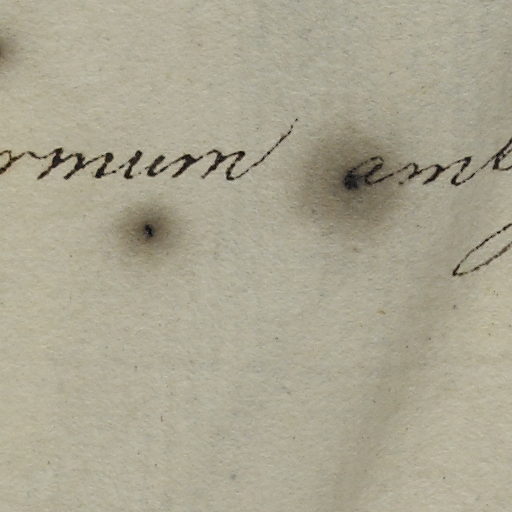 rmum amb